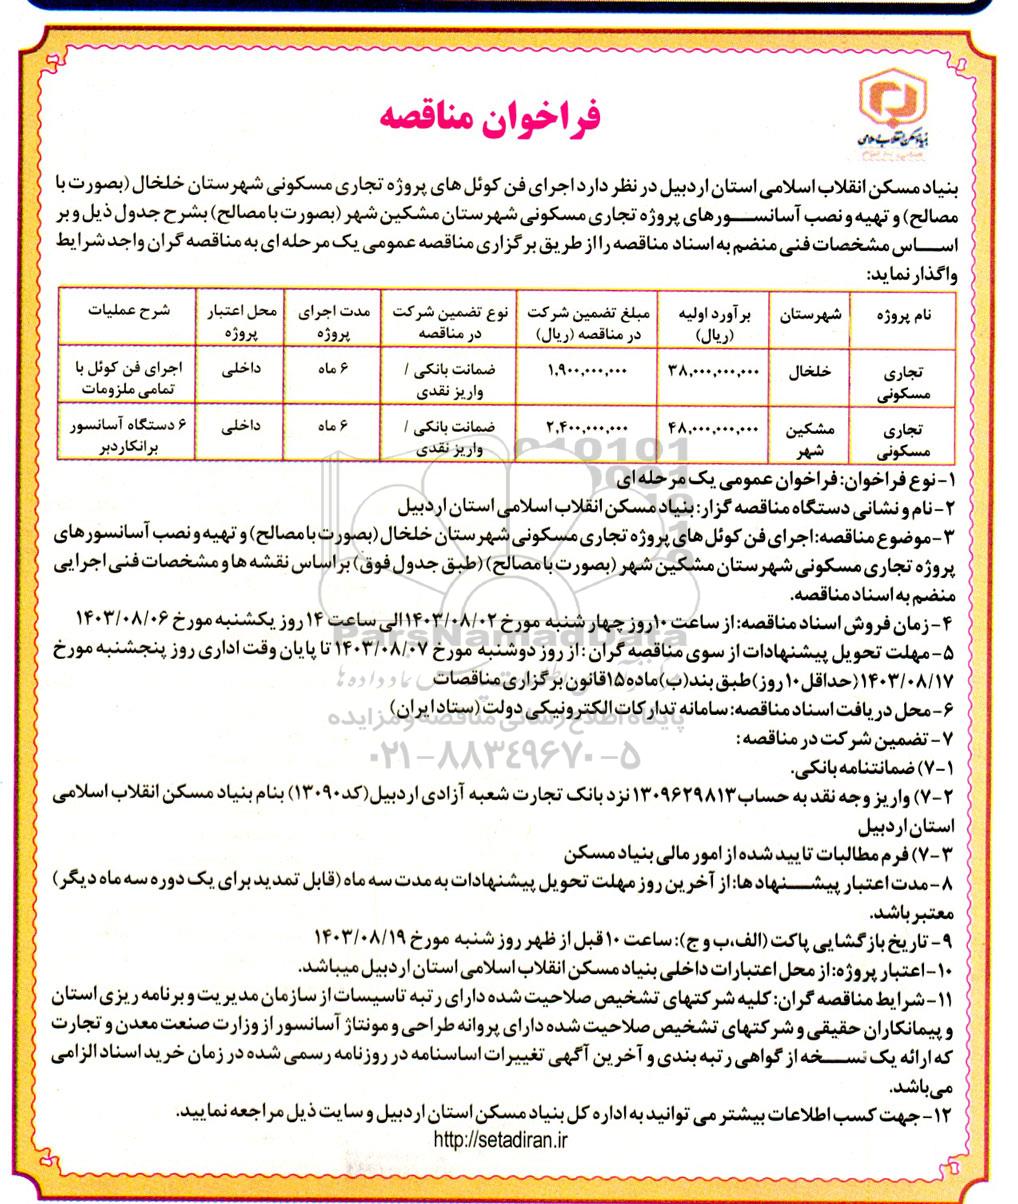 بنیاد مسکن انقلاب اسلامی
فراخوان مناقصه
بنیاد مسکن انقلاب اسلامی استان اردبیل در نظر دارد اجرای فن کوئل های پروژه تجاری مسکونی شهرستان خلخال (بصورت با
مصالح) و تهیه و نصب آسانسورهای پروژه تجاری مسکونی شهرستان مشکین شهر (بصورت با مصالح) بشرح جدول ذیل و بر
اساس مشخصات فنی منضم به اسناد مناقصه را از طریق برگزاری مناقصه عمومی یک مرحله ای به مناقصه گران واجد شرایط
واگذار نماید:
نام پروژه | شهرستان | برآورد اولیه (ریال) | مبلغ تضمین شرکت در مناقصه (ریال) | نوع تضمین شرکت در مناقصه | مدت اجرای پروژه | محل اعتبار پروژه | شرح عملیات
تجاری مسکونی | خلخال | ۳۸,۰۰۰,۰۰۰,۰۰۰ | ۱,۹۰۰,۰۰۰,۰۰۰ | ضمانت بانکی / واریز نقدی | ۶ ماه | داخلی | اجرای فن کوئل با تمامی ملزومات
تجاری مسکونی | مشکین شهر | ۴۸,۰۰۰,۰۰۰,۰۰۰ | ۲,۴۰۰,۰۰۰,۰۰۰ | ضمانت بانکی / واریز نقدی | ۶ ماه | داخلی | ۶ دستگاه آسانسور برانکاردبر
۱- نوع فراخوان: فراخوان عمومی یک مرحله ای
۲- نام و نشانی دستگاه مناقصه گزار: بنیاد مسکن انقلاب اسلامی استان اردبیل
۳- موضوع مناقصه: اجرای فن کوئل های پروژه تجاری مسکونی شهرستان خلخال (بصورت با مصالح) و تهیه و نصب آسانسورهای
پروژه تجاری مسکونی شهرستان مشکین شهر (بصورت با مصالح) (طبق جدول فوق) براساس نقشه ها و مشخصات فنی اجرایی
منضم به اسناد مناقصه.
۴- زمان فروش اسناد مناقصه: از ساعت ۱۰ روز چهار شنبه مورخ ۱۴۰۳/۰۸/۰۲ الی ساعت ۱۴ روز یکشنبه مورخ ۱۴۰۳/۰۸/۰۶
۵- مهلت تحویل پیشنهادات از سوی مناقصه گران : از روز دوشنبه مورخ ۱۴۰۳/۰۸/۰۷ تا پایان وقت اداری روز پنجشنبه مورخ
۱۴۰۳/۰۸/۱۷ (حداقل ۱۰ روز) طبق بند (ب) ماده ۱۵ قانون برگزاری مناقصات
۶- محل دریافت اسناد مناقصه: سامانه تدارکات الکترونیکی دولت (ستاد ایران)
۷- تضمین شرکت در مناقصه :
۷-۱) ضمانتنامه بانکی.
۷-۲) واریز وجه نقد به حساب ۱۳۰۹۶۲۹۸۱۳ نزد بانک تجارت شعبه آزادی اردبیل (کد ۱۳۰۹۰) بنام بنیاد مسکن انقلاب اسلامی
استان اردبیل
۷-۳) فرم مطالبات تایید شده از امور مالی بنیاد مسکن
۸- مدت اعتبار پیشنهاد ها: از آخرین روز مهلت تحویل پیشنهادات به مدت سه ماه (قابل تمدید برای یک دوره سه ماه دیگر)
معتبر باشد.
۹- تاریخ بازگشایی پاکت (الف، ب و ج): ساعت ۱۰ قبل از ظهر روز شنبه مورخ ۱۴۰۳/۰۸/۱۹
۱۰- اعتبار پروژه: از محل اعتبارات داخلی بنیاد مسکن انقلاب اسلامی استان اردبیل میباشد.
۱۱- شرایط مناقصه گران: کلیه شرکتهای تشخیص صلاحیت شده دارای رتبه تاسیسات از سازمان مدیریت و برنامه ریزی استان
و پیمانکاران حقیقی و شرکتهای تشخیص صلاحیت شده دارای پروانه طراحی و مونتاژ آسانسور از وزارت صنعت معدن و تجارت
که ارائه یک نسخه از گواهی رتبه بندی و آخرین آگهی تغییرات اساسنامه در روزنامه رسمی شده در زمان خرید اسناد الزامی
می باشد.
۱۲- جهت کسب اطلاعات بیشتر می توانید به اداره کل بنیاد مسکن استان اردبیل و سایت ذیل مراجعه نمایید.
http://setadiran.ir
ParsNamadData
پایگاه اطلاع رسانی مناقصه و مزایده
۰۲۱-۸۸۳۴۹۶۷۰-۵